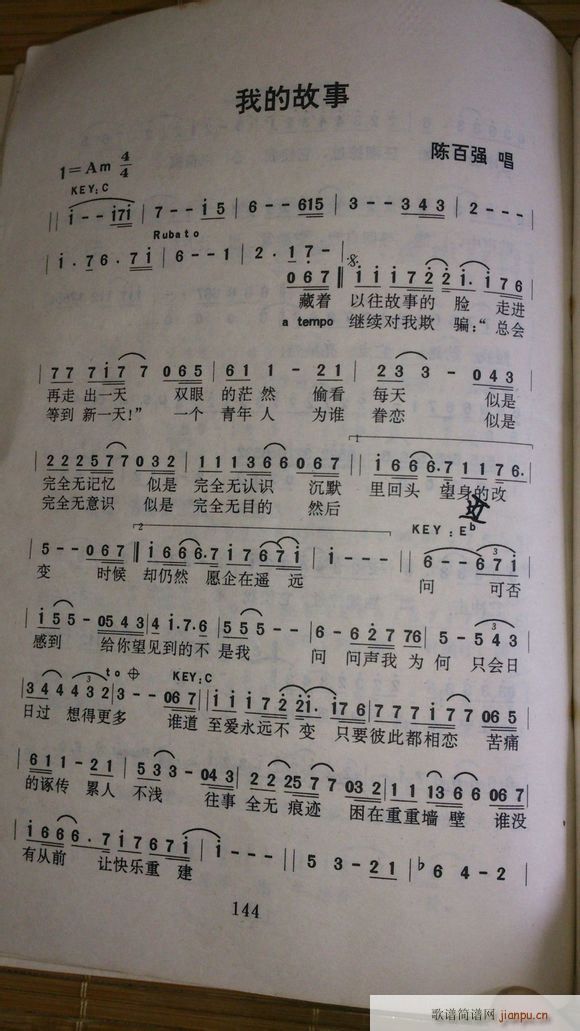 我的故事
1=Am 4/4
陈百强 唱
KEY:C
i--i7i|7--i5|6--615|3--343|2---|
Rubato
i·76·7i|6--1|2·17-|
067‖iii7 22i·i76
藏着 以往故事的 脸 走进
a tempo 继续对我欺 骗:“总会
|77 7i7 7 065|611-21|233-043|
再走 出一天 双眼 的茫然 偷看 每天 似是
等到 新一天!” 一个 青年人 为谁 眷恋 似是
1
|222577032|111366067‖i666·71176·|
完全无记忆 似是 完全无认识 沉默 里回头 望身的改
完全无意识 似是 完全无目的 然后
边
2
KEY:Eb
|5--067‖i666·7i767i|i---‖6--67i|
变 时候 却仍然 愿企在遥 远 问 可否
|i55-0543|4i·7·6|555--|6-62776|5-543|
感到 给你望见到的不 是我 问 问声我 为何 只会日
to KEY:C
|3444432|3--067‖iii722i·i76|777i77065|
日过 想得更多 谁道 至爱永远不 变 只要彼此都相恋 苦痛
|611-21|533-043|222577032|1113666067|
的诼传 累人 不浅 往事 全无 痕迹 困在重重墙 壁 谁没
|i666·7i767i|i---‖53-21|b64-2|
有从前 让快乐重 建
144
歌谱简谱网
jianpu.cn